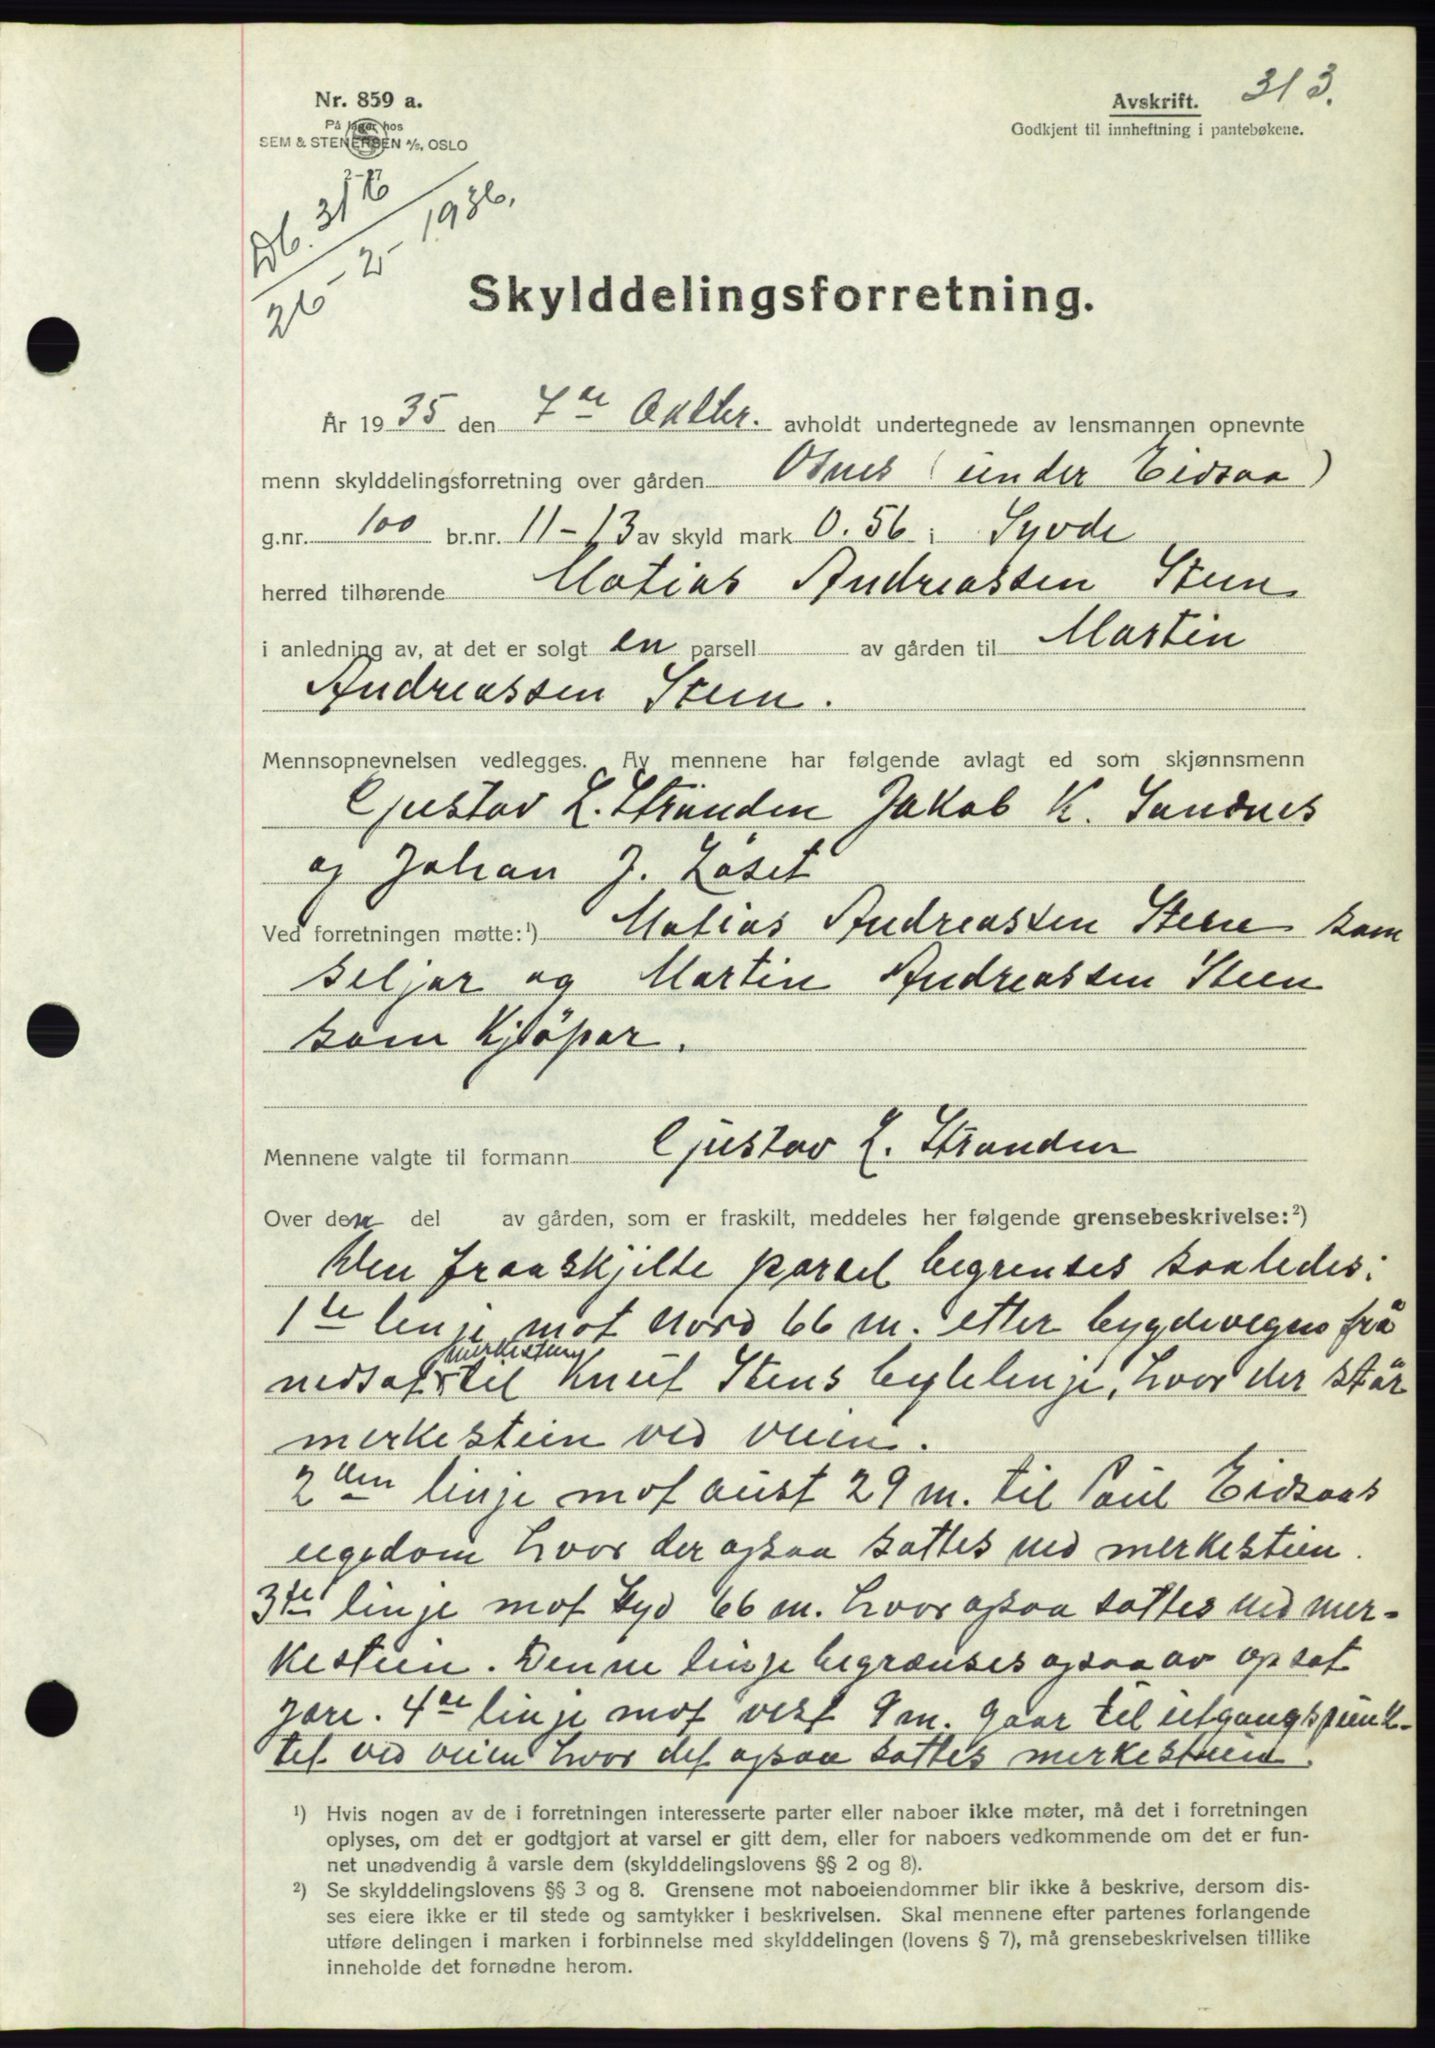 Nr. 859 a.
På lager hos
SEM & STENERSEN A/S, OSLO
2-37
Avskrift. 313.
Godkjent til innheftning i pantebøkene.
Db. 316
26-2-1936.
Skylddelingsforretning.
År 1935 den 7de Oktbr. avholdt undertegnede av lensmannen opnevnte
menn skylddelingsforretning over gården Osnes (under Eidsaa)
g.nr. 100 br.nr. 11-13 av skyld mark 0.56 i Syvde
herred tilhørende Matias Andreassen Steen
i anledning av, at det er solgt en parsell av gården til Martin
Andreassen Steen.
Mennsopnevnelsen vedlegges. Av mennene har følgende avlagt ed som skjønnsmenn
Gustav L. Stranden Jakob K. Sandnes
og Johan J. Løset
Ved forretningen møtte:¹) Matias Andreassen Steen som
seljar og Martin Andreassen Steen
som Kjöpar.
Mennene valgte til formann Gustav L. Stranden
Over den del av gården, som er fraskilt, meddeles her følgende grensebeskrivelse:²)
Den fraaskjilte parsel begrenses saaledes:
1te linje mot Nord 66 m. etter bygdevegen frå
merkestein
nedsat til Knut Stens bytelinje, hvor der står
merkestein ved veien.
2den linje mot aust 29 m. til Paul Eidsaas
eigedom hvor der ogsaa sattes ned merkestein.
3de linje mot Syd 66 m. hvor ogsaa sattes ned mer-
kestein. Denne linje begrænses ogsaa av opsat
gjære. 4de linje mot vest 9 m. gaar til utgangspunk-
tet ved veien hvor det ogsaa sattes merkestein.
¹) Hvis nogen av de i forretningen interesserte parter eller naboer ikke møter, må det i forretningen
oplyses, om det er godtgjort at varsel er gitt dem, eller for naboers vedkommende om det er fun-
net unødvendig å varsle dem (skylddelingslovens §§ 2 og 8).
²) Se skylddelingslovens §§ 3 og 8. Grensene mot naboeiendommer blir ikke å beskrive, dersom dis-
ses eiere ikke er til stede og samtykker i beskrivelsen. Skal mennene efter partenes forlangende
utføre delingen i marken i forbinnelse med skylddelingen (lovens § 7), må grensebeskrivelsen tillike
inneholde det fornødne herom.